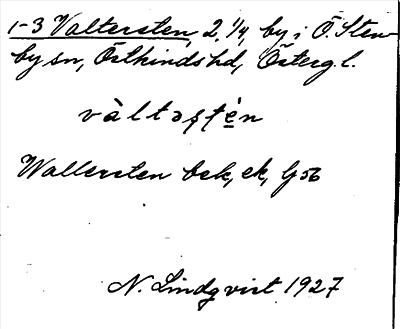 1-3 Valtersten, 2 1/4, by i Ö. Sten-
by sn, Östkinds hd, Österg. l.
vàltəṣṭén
Wallersten bek, ek, G56
N. Lindqvist 1927